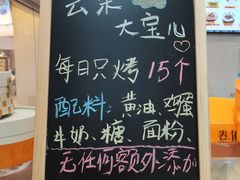 云朵
大宝儿
每日只烤15个
配料:黄油、鸡蛋
牛奶、糖、面粉
无任何额外添加
卷